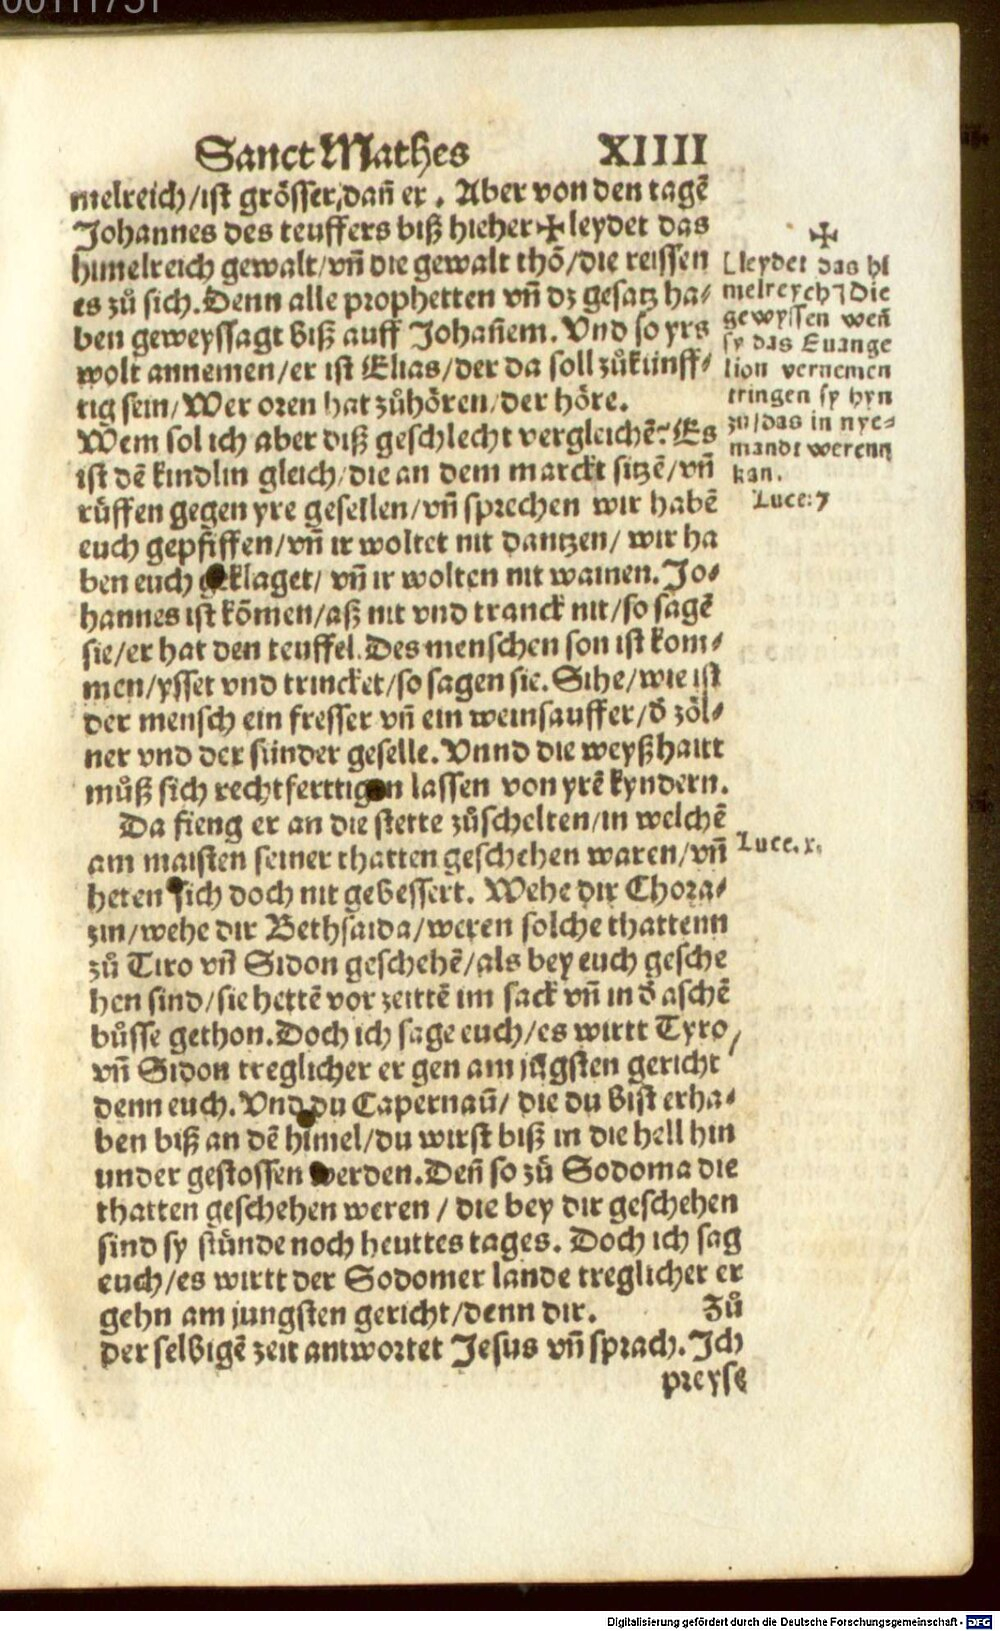 00111751
Sanct Mathes XIIII
melreich/ist grösser/dañ er. Aber von den tagẽ
Johannes des teuffers biß hieher ✠ leydet das
himelreich gewalt/vñ die gewalt thõ/die reissen
es zů sich. Denn alle prophetten vñ dz gesatz ha-
ben geweyssagt biß auff Johañem. Vnd so yrs
wolt annemen/er ist Elias/der da soll zůkünff-
tig sein/Wer oren hat zůhören/der höre.
Wem sol ich aber diß geschlecht vergleichẽ? Es
ist dẽ kindlin gleich/die an dem marckt sitzẽ/vñ
rüffen gegen yre gesellen/vñ sprechen wir habẽ
euch gepfiffen/vñ ir woltet nit dantzen/ wir ha
ben euch geklaget/ vñ ir wolten nit wainen. Jo-
hannes ist kõmen/aß nit vnd tranck nit/so sagẽ
sie/er hat den teuffel. Des menschen son ist kom-
men/ysset vnd trincket/so sagen sie. Sihe/wie ist
der mensch ein fresser vñ ein weinsauffer/d̃ zöl-
ner vnd der sünder geselle. Vnnd die weyßhaitt
můß sich rechtferttigen lassen von yrẽ kyndern.
Da fieng er an die stette zůschelten/in welchẽ
am maisten seiner thatten geschehen waren/vñ
heten sich doch nit gebessert. Wehe dir Chora-
zin/wehe dir Bethsaida/weren solche thattenn
zů Tiro vñ Sidon geschehẽ/als bey euch gesche
hen sind/sie hettẽ vor zeittẽ im sack vñ in d̃ aschẽ
bůsse gethon. Doch ich sage euch/es wirtt Tyro/
vñ Sidon treglicher er gen am jũgsten gericht
denn euch. Vnd du Capernaũ/ die du bist erha-
ben biß an dẽ hĩmel/du wirst biß in die hell hin
under gestossen werden. Deñ so zů Sodoma die
thatten geschehen weren / die bey dir geschehen
sind sy stünde noch heuttes tages. Doch ich sag
euch/es wirtt der Sodomer lande treglicher er
gehn am jungsten gericht/denn dir. Zů
der selbigẽ zeit antwortet Jesus vñ sprach. Jch
preyse
✠
[leydet das hĩ
melreych] Die
gewyssen weñ
sy das Euange
lion vernemen
tringen sy hyn
zu/das in nye-
mandt werenn
kan.
Luce. 7
Luce. x.
Digitalisierung gefördert durch die Deutsche Forschungsgemeinschaft - DFG